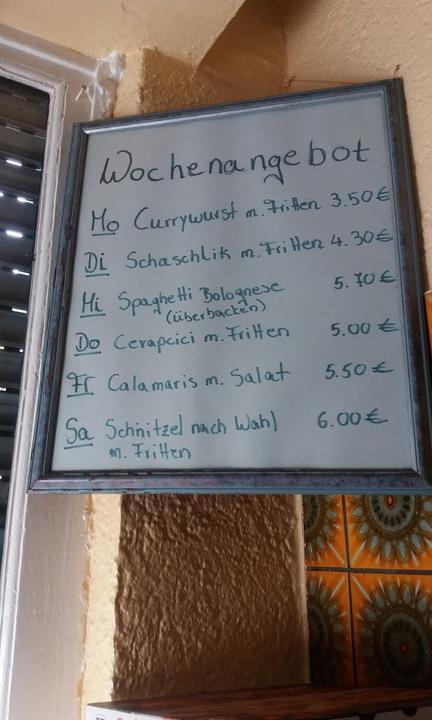 Wochenangebot
Mo Currywurst m. Fritten 3.50€
Di Schaschlik m. Fritten 4.30€
Mi Spaghetti Bolognese 5.70€
(überbacken)
Do Cerapcici m. Fritten 5.00€
Fr Calamaris m. Salat 5.50€
Sa Schnitzel nach Wahl 6.00€
m. Fritten